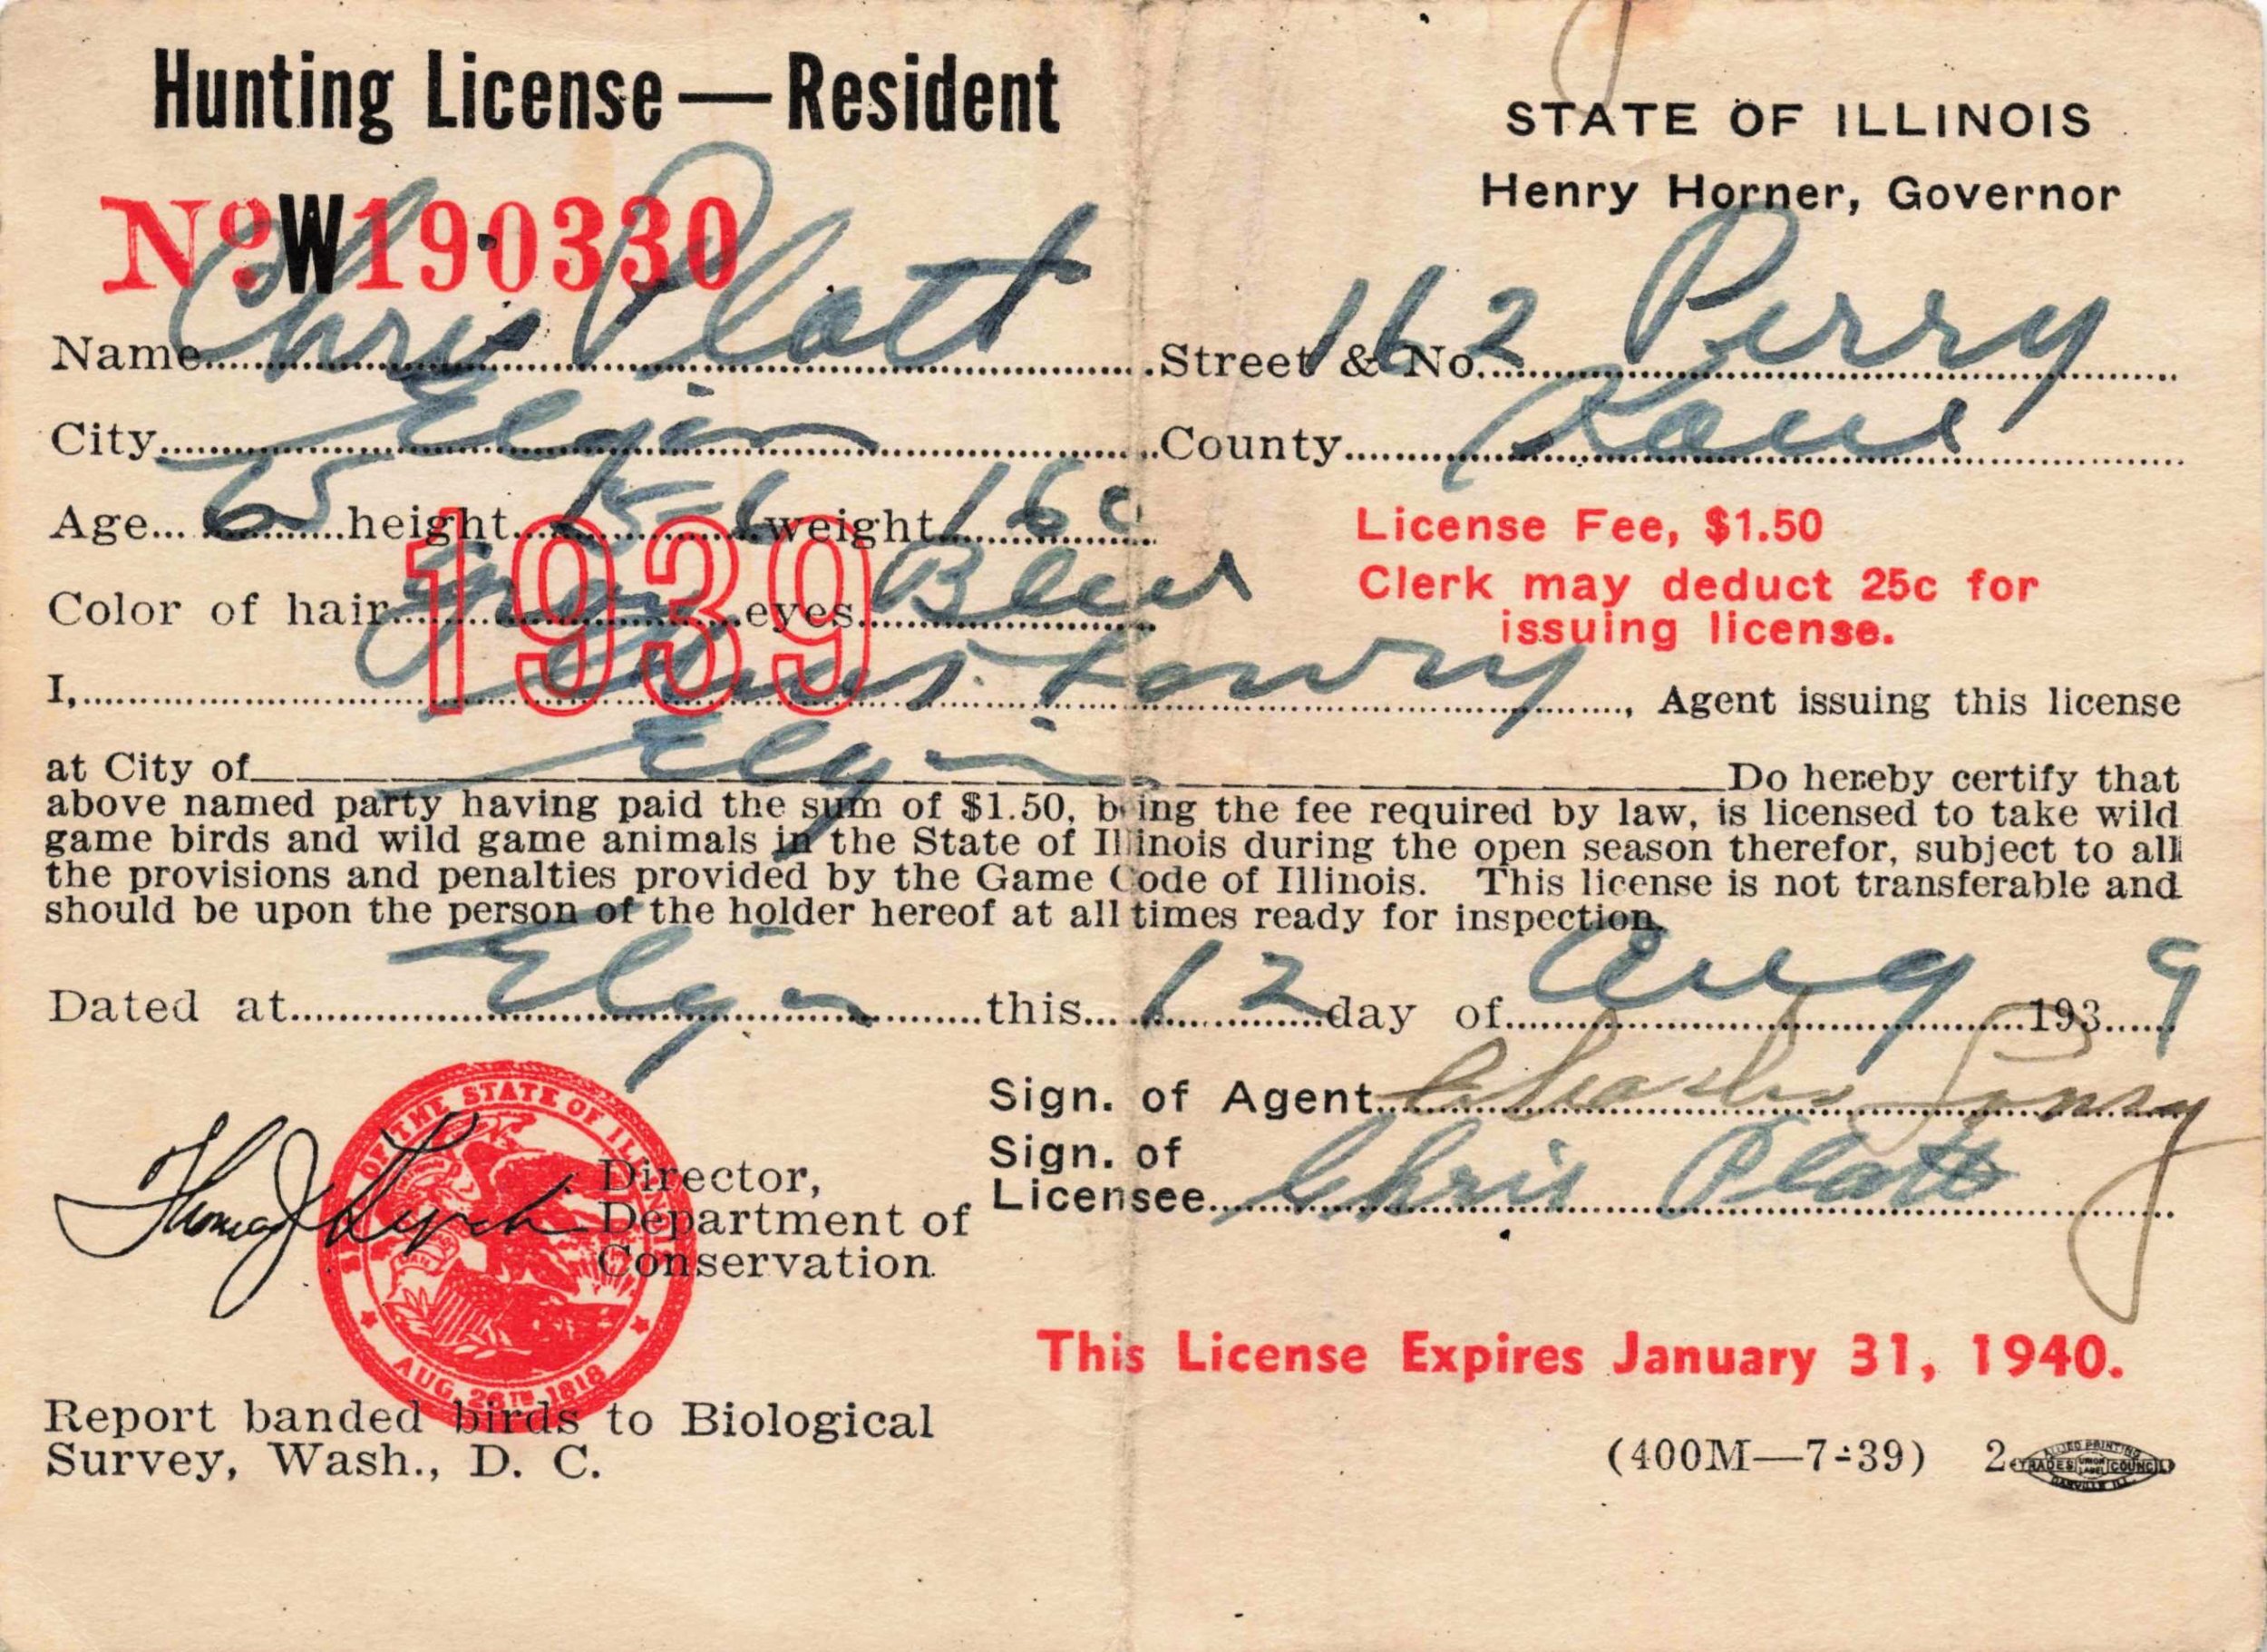 Hunting License — Resident
STATE OF ILLINOIS
Henry Horner, Governor
No W190330
Name Chris Platt Street & No. 162 Perry
City Elgin County Kane
Age 65 height 5-6 weight 160
License Fee, $1.50
Clerk may deduct 25c for
issuing license.
1939
Color of hair Gray eyes Blue
I, Chas. Lowry, Agent issuing this license
at City of Elgin Do hereby certify that
above named party having paid the sum of $1.50, being the fee required by law, is licensed to take wild
game birds and wild game animals in the State of Illinois during the open season therefor, subject to all
the provisions and penalties provided by the Game Code of Illinois. This license is not transferable and
should be upon the person of the holder hereof at all times ready for inspection.
Dated at Elgin this 12 day of Aug 1939
Sign. of Agent Charles Lowry
Sign. of
Licensee Chris Platt
Thomas J Lynch Director,
Department of
Conservation
OF THE STATE OF ILL
AUG. 26TH 1818
This License Expires January 31, 1940.
Report banded birds to Biological
Survey, Wash., D. C.
(400M—7-39) 2
ALLIED PRINTING
TRADES UNION LABEL COUNCIL
DANVILLE ILL.